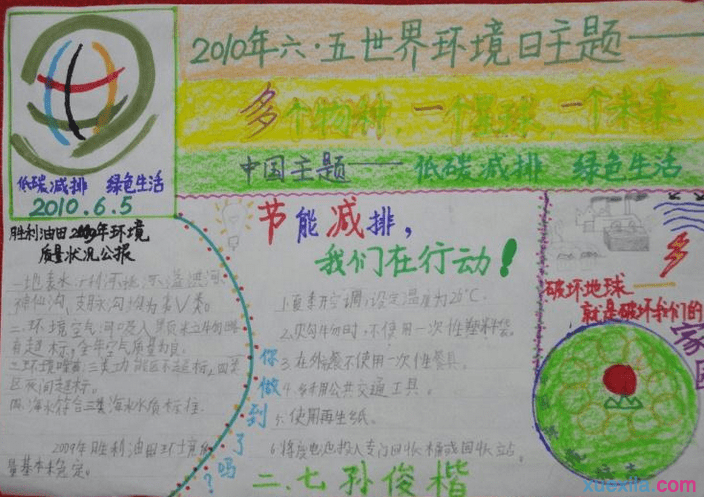 2010年六·五世界环境日主题——
多个物种,一个星球,一个未来
中国主题—— 低碳减排 绿色生活
低碳减排 绿色生活
2010.6.5
胜利油田2009年环境
质量状况公报
神仙沟,支脉沟均为劣V类。
有超标,全年空气质量为良。
区夜间超标。
四.海水符合三类海水水质标准.
2009年胜利油田环境质
量基本稳定。
节能减排,
我们在行动!
1.夏季开空调,设定温度为26℃.
2.购物时,不使用一次性塑料袋.
3.在外就餐不使用一次性餐具。
4.多采用公共交通工具。
5.使用再生纸.
6.将废电池投入专门回收桶或回收站.
你做到了吗?
破坏地球——
就是破坏我们的
家园
二.七孙俊楷
xuexila.com